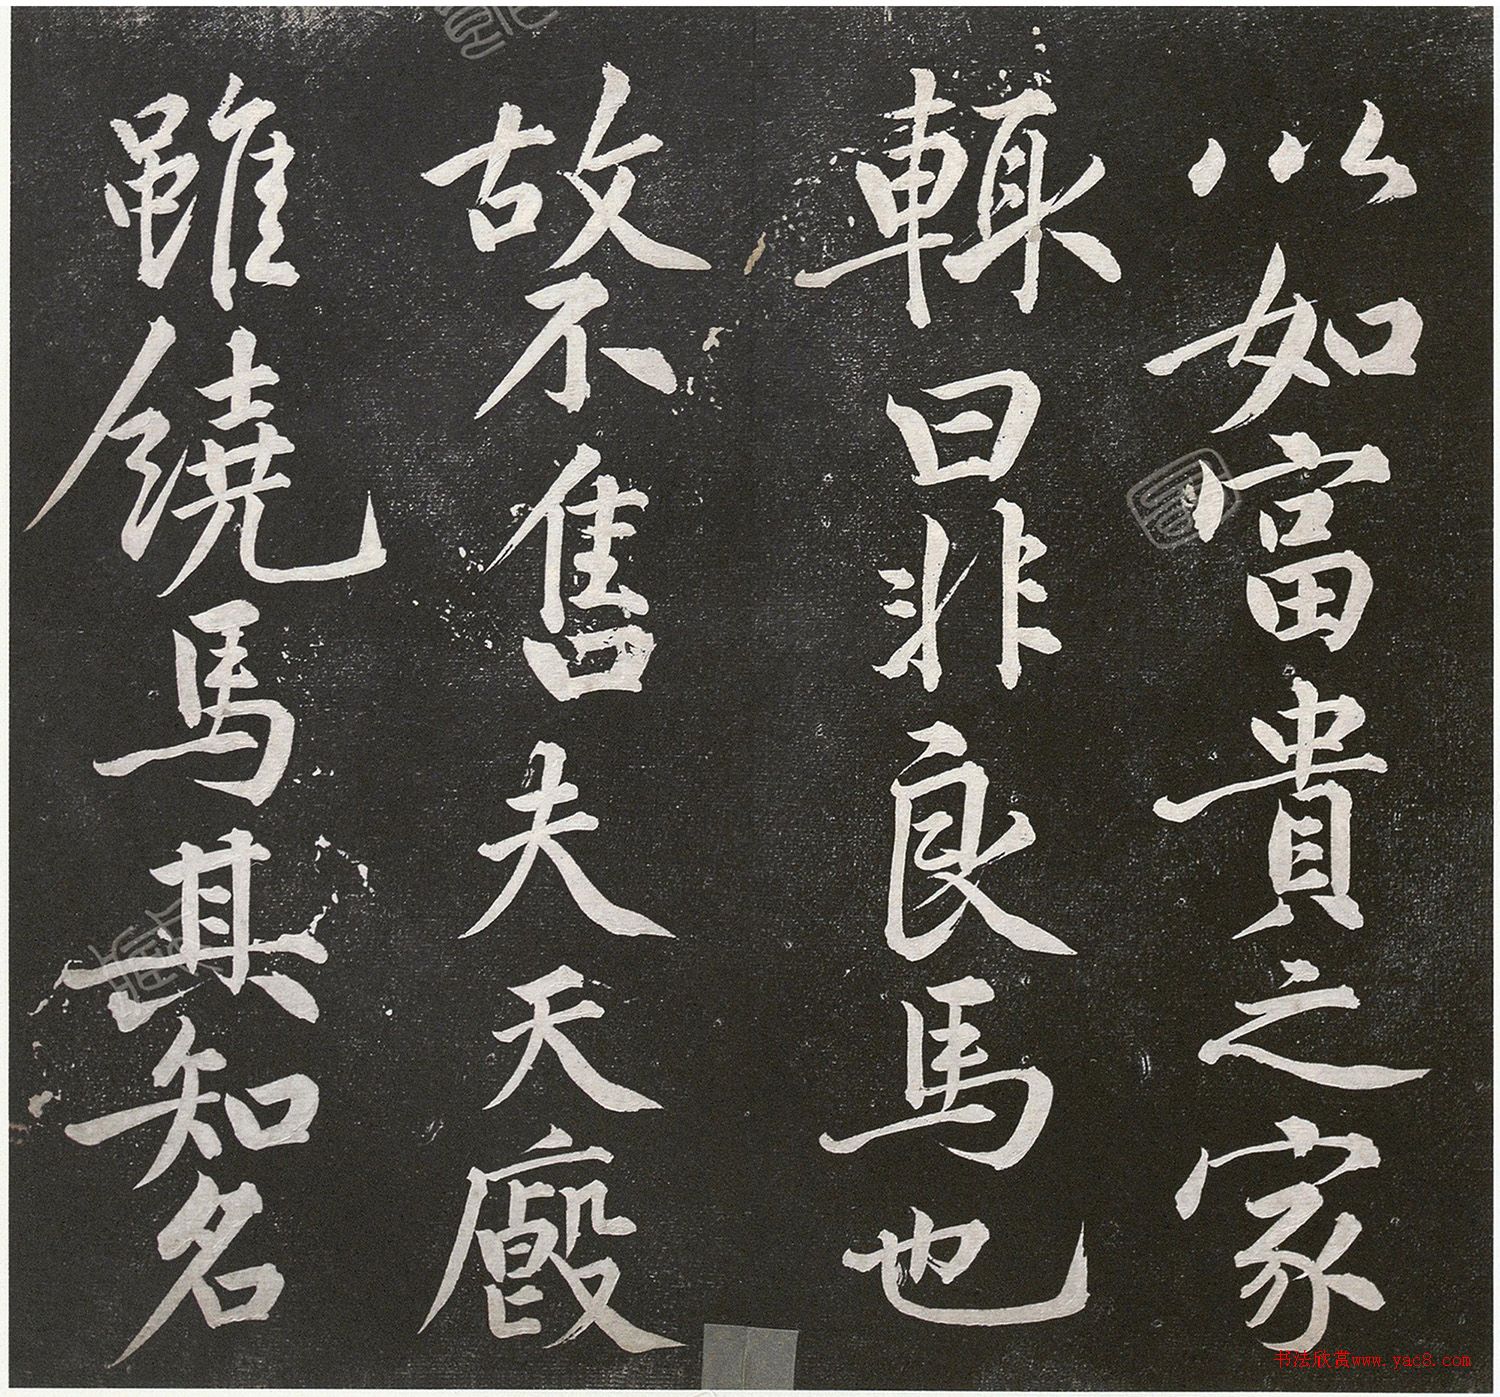 以如富貴之家
輙曰非良馬也
故不售夫天廄
雖饒馬其知名
书法欣赏www.yac8.com